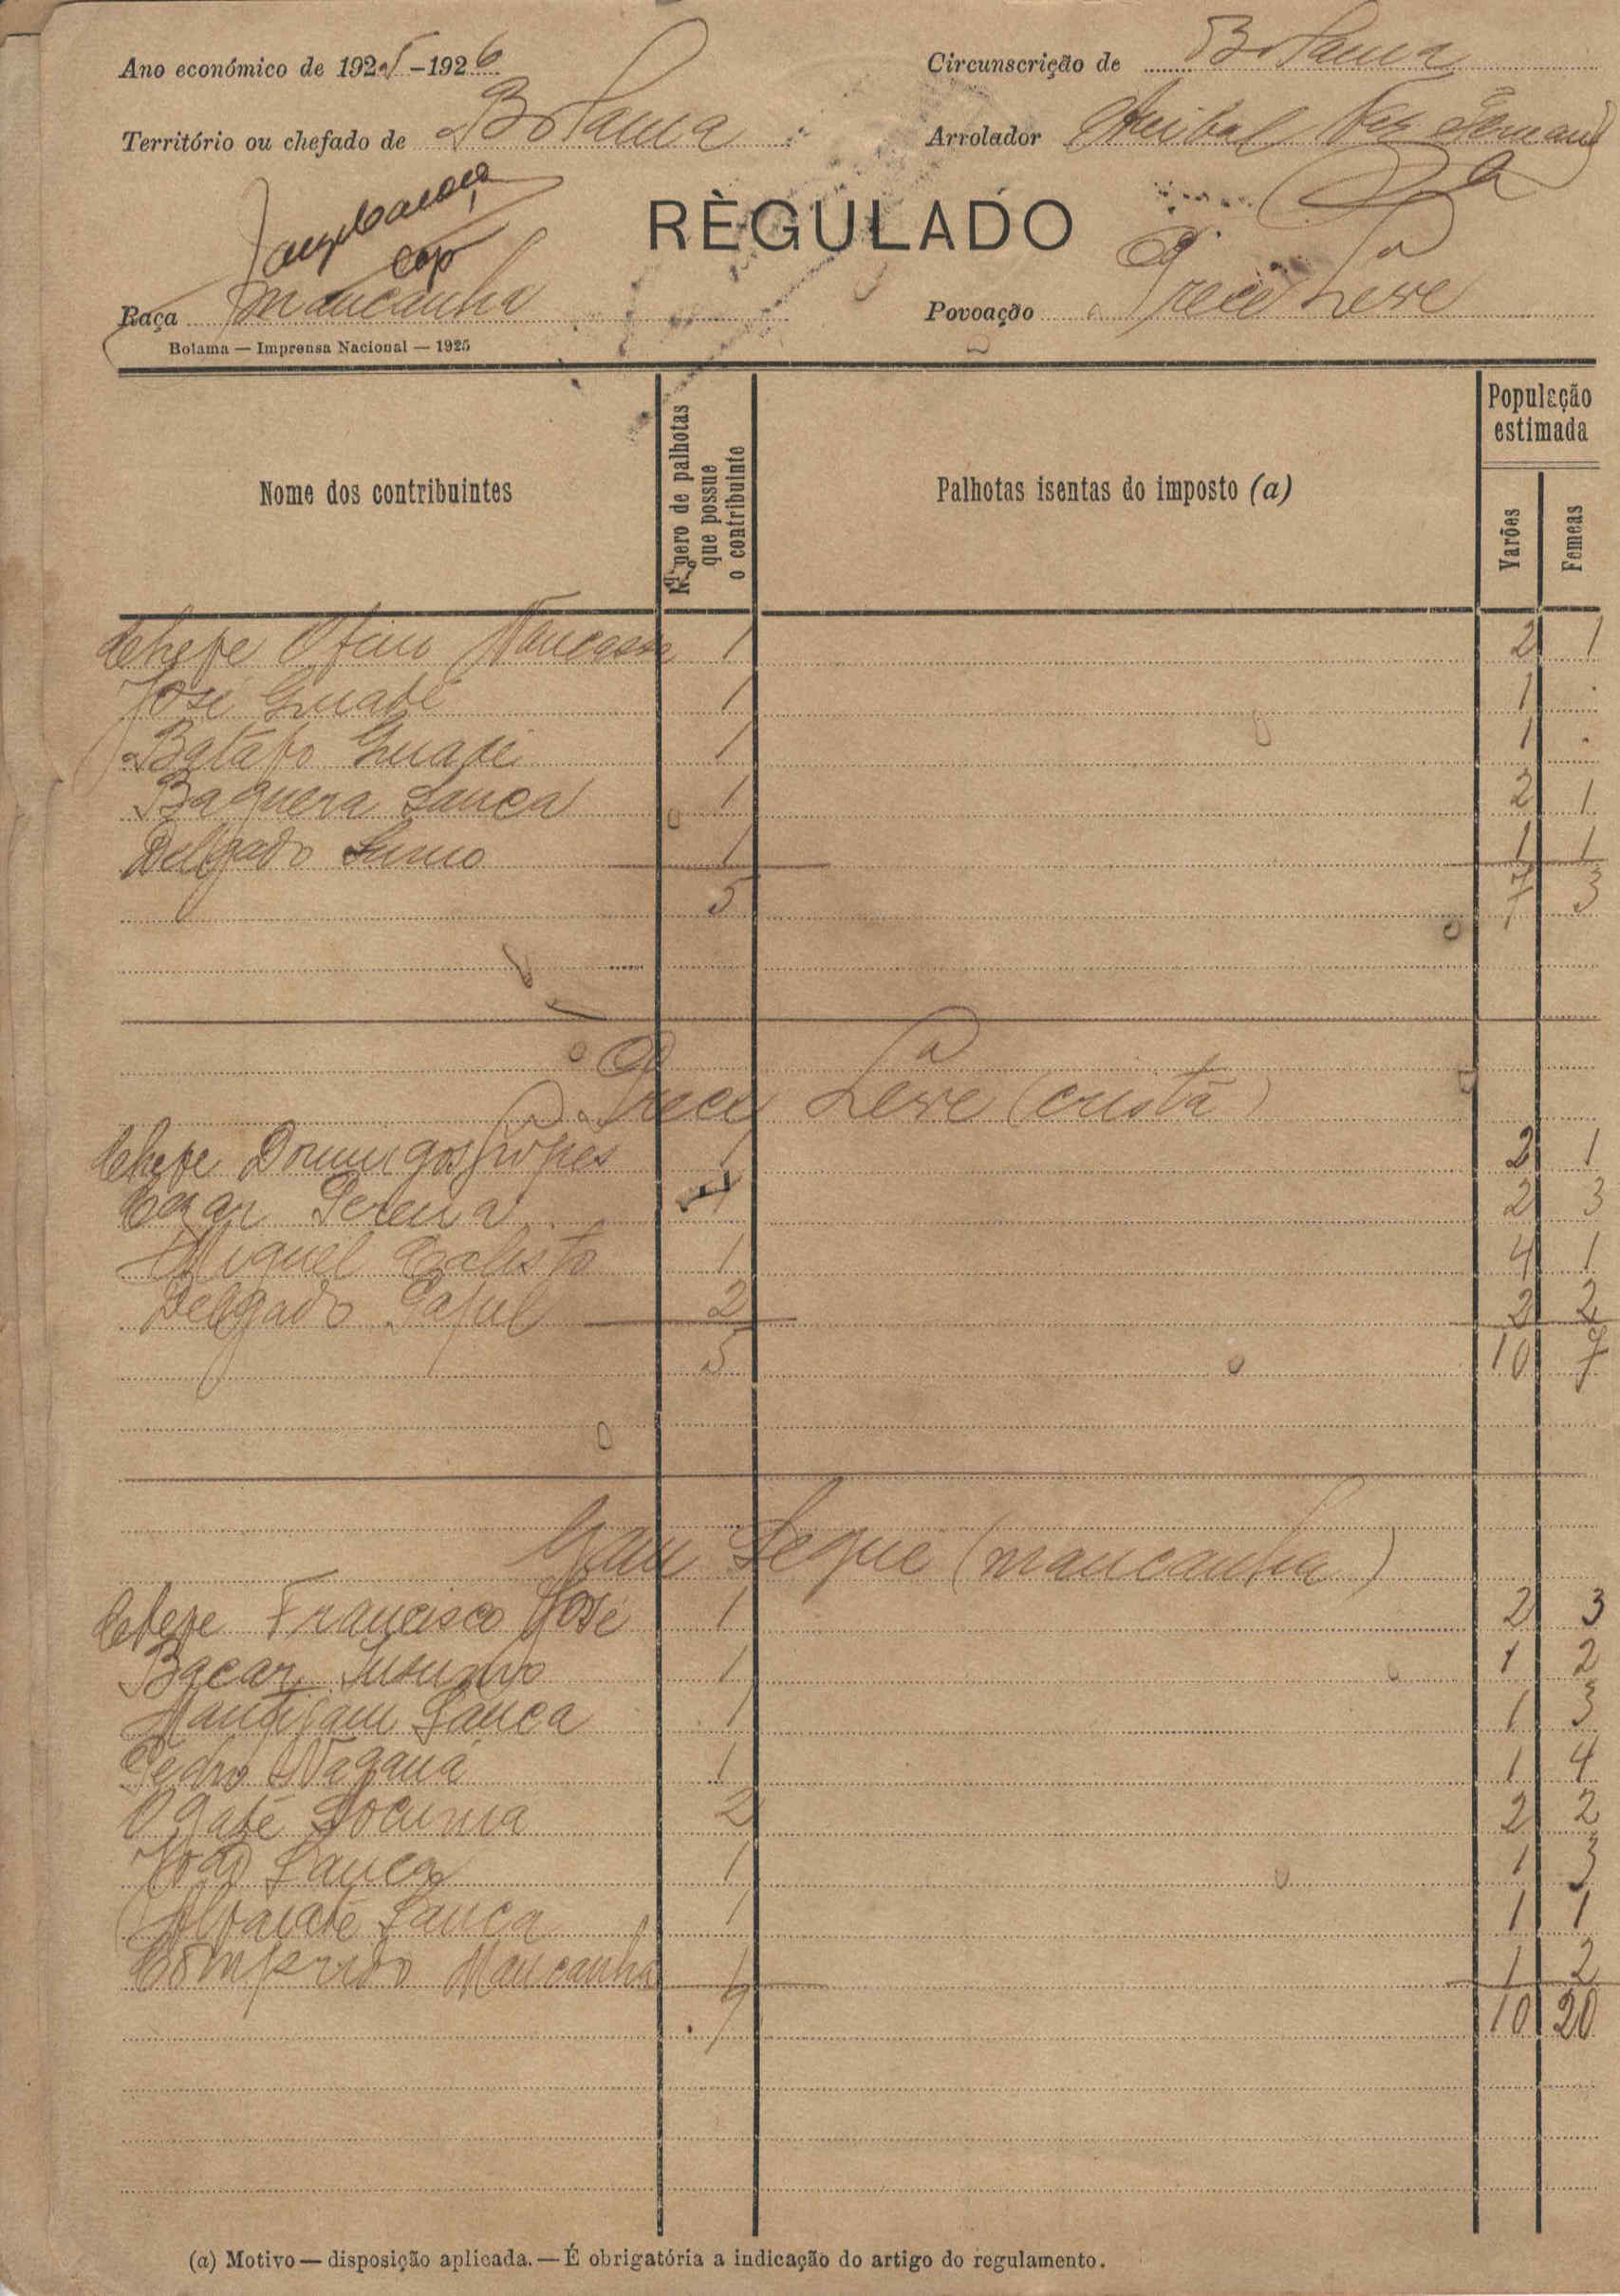 Ano económico de 1925-1926
Circunscrição de Bolama
Território ou chefado de Bolama
Arrolador Anibal Vaz
RÈGULADO
Raça Mancanha
Povoação Prece Léve
Bolama — Imprensa Nacional — 1925
Nome dos contribuintes
Número de palhotas que possue o contribuinte
Palhotas isentas do imposto (a)
População estimada
Varões
Femeas
Chefe 1 2 1
José Guabé 1 1 .
Guabé 1 1 .
Baquera Sanca 1 2 1
Delgado 1 1 1
5 7 3
Prece Léve (cristã)
Chefe Domingos Lopes 1 2 1
Cezar Pereira 1 2 3
Miguel Calisto 1 4 1
Delgado 2 2 2
5 10 7
Gan Seque (mancanha)
Chefe Francisco José 1 2 3
Bacar 1 1 2
Sanca 1 1 3
Pedro 1 1 4
2 2 2
João Sanca 1 1 3
Sanca 1 1 1
Comprido Mancanha 1 1 2
9 10 20
(a) Motivo — disposição aplicada. — É obrigatória a indicação do artigo do regulamento.